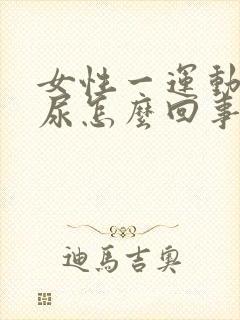 女性一運動
尿怎麼回事
迪馬吉奧